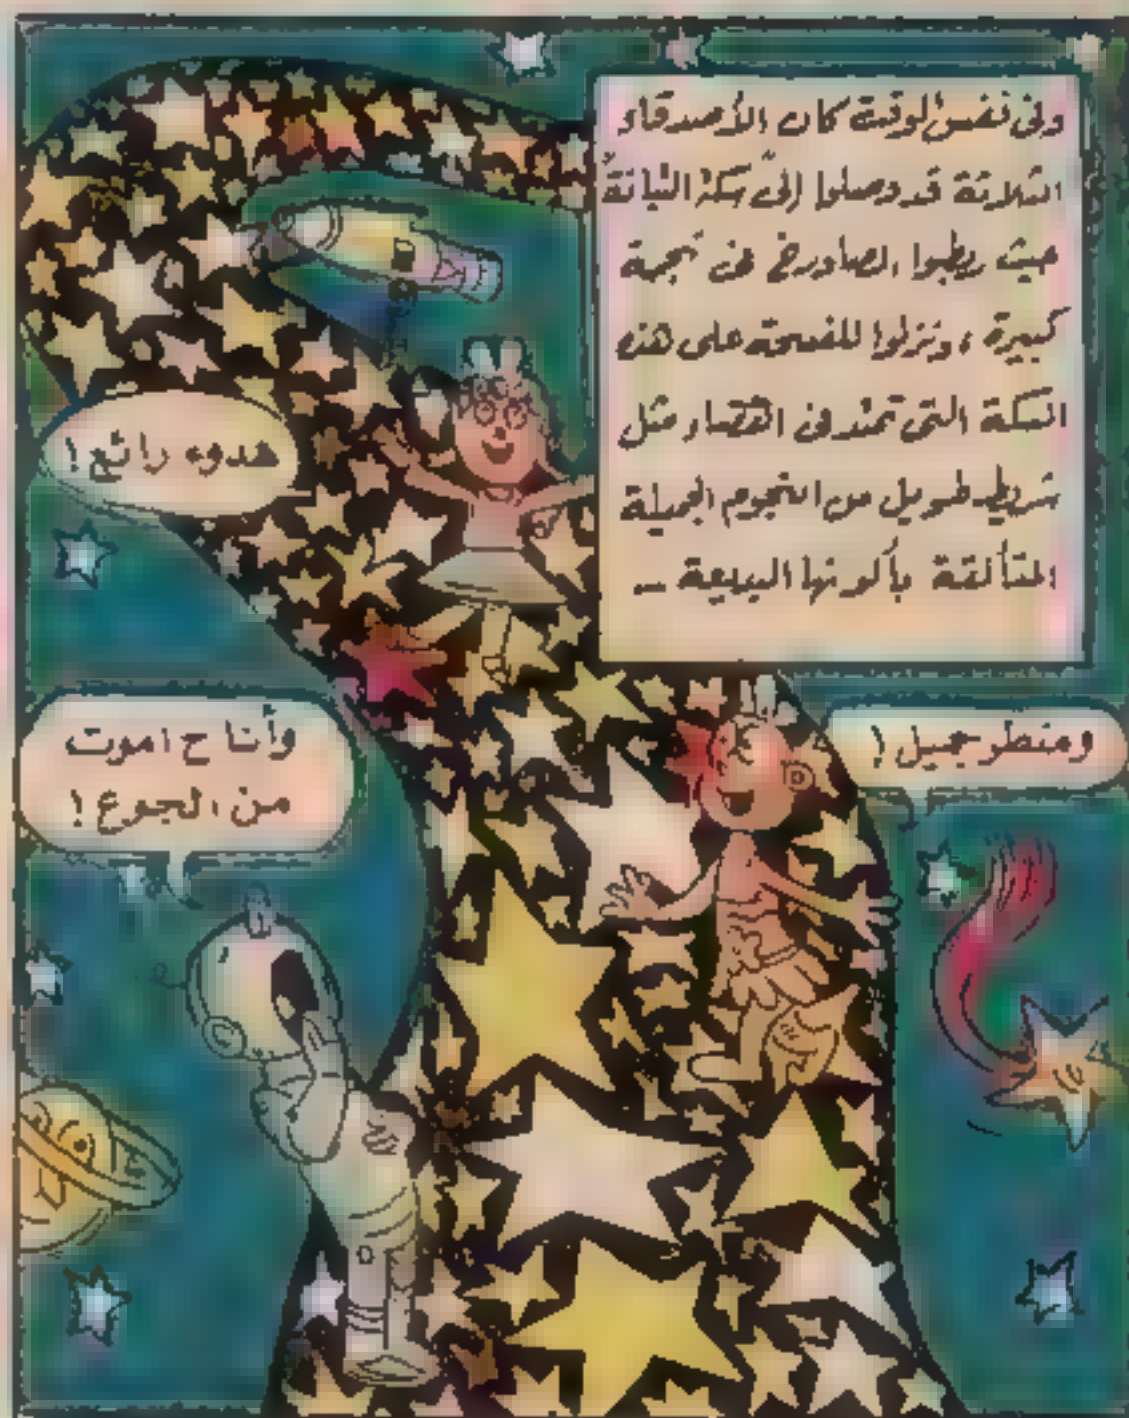 وفى نفس الوقت كان الأصدقاء
الثلاثة قد وصلوا إلى سكة التبانة
حيث ربطوا الصاروخ فى نجمة
كبيرة ، ونزلوا للفسحة على هذه
السكة التى تمتد فى الفضاء مثل
شريط طويل من النجوم الجميلة
المتألقة بألوانها البديعة ــ
هدوء رائع !
ومنظر جميل !
وأنا ح اموت
من الجوع !